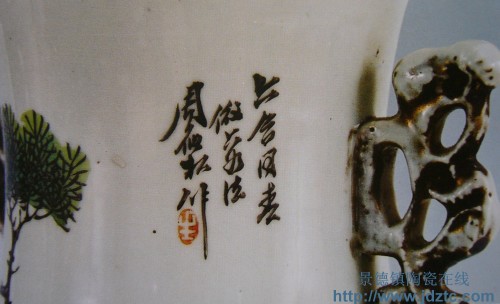 六合同春
倣華法
周仙松作
景德镇陶瓷在线
http://www.jdztc.com